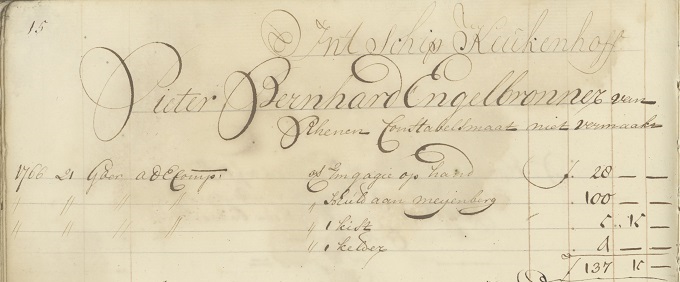 15
Int Schip Keukenhoff
Pieter Bernhard Engelbronner van
Rhenen Constabelsmaat niet vermaakt
1766 21 aDEComp: Engagie op hand f. 28 — —
" " " " " Schuld aan Meijenberg " 100 — —
" " " " " 1 kist " 5 .. 15 —
" 1 kelder 4 — —
f 137 15 —